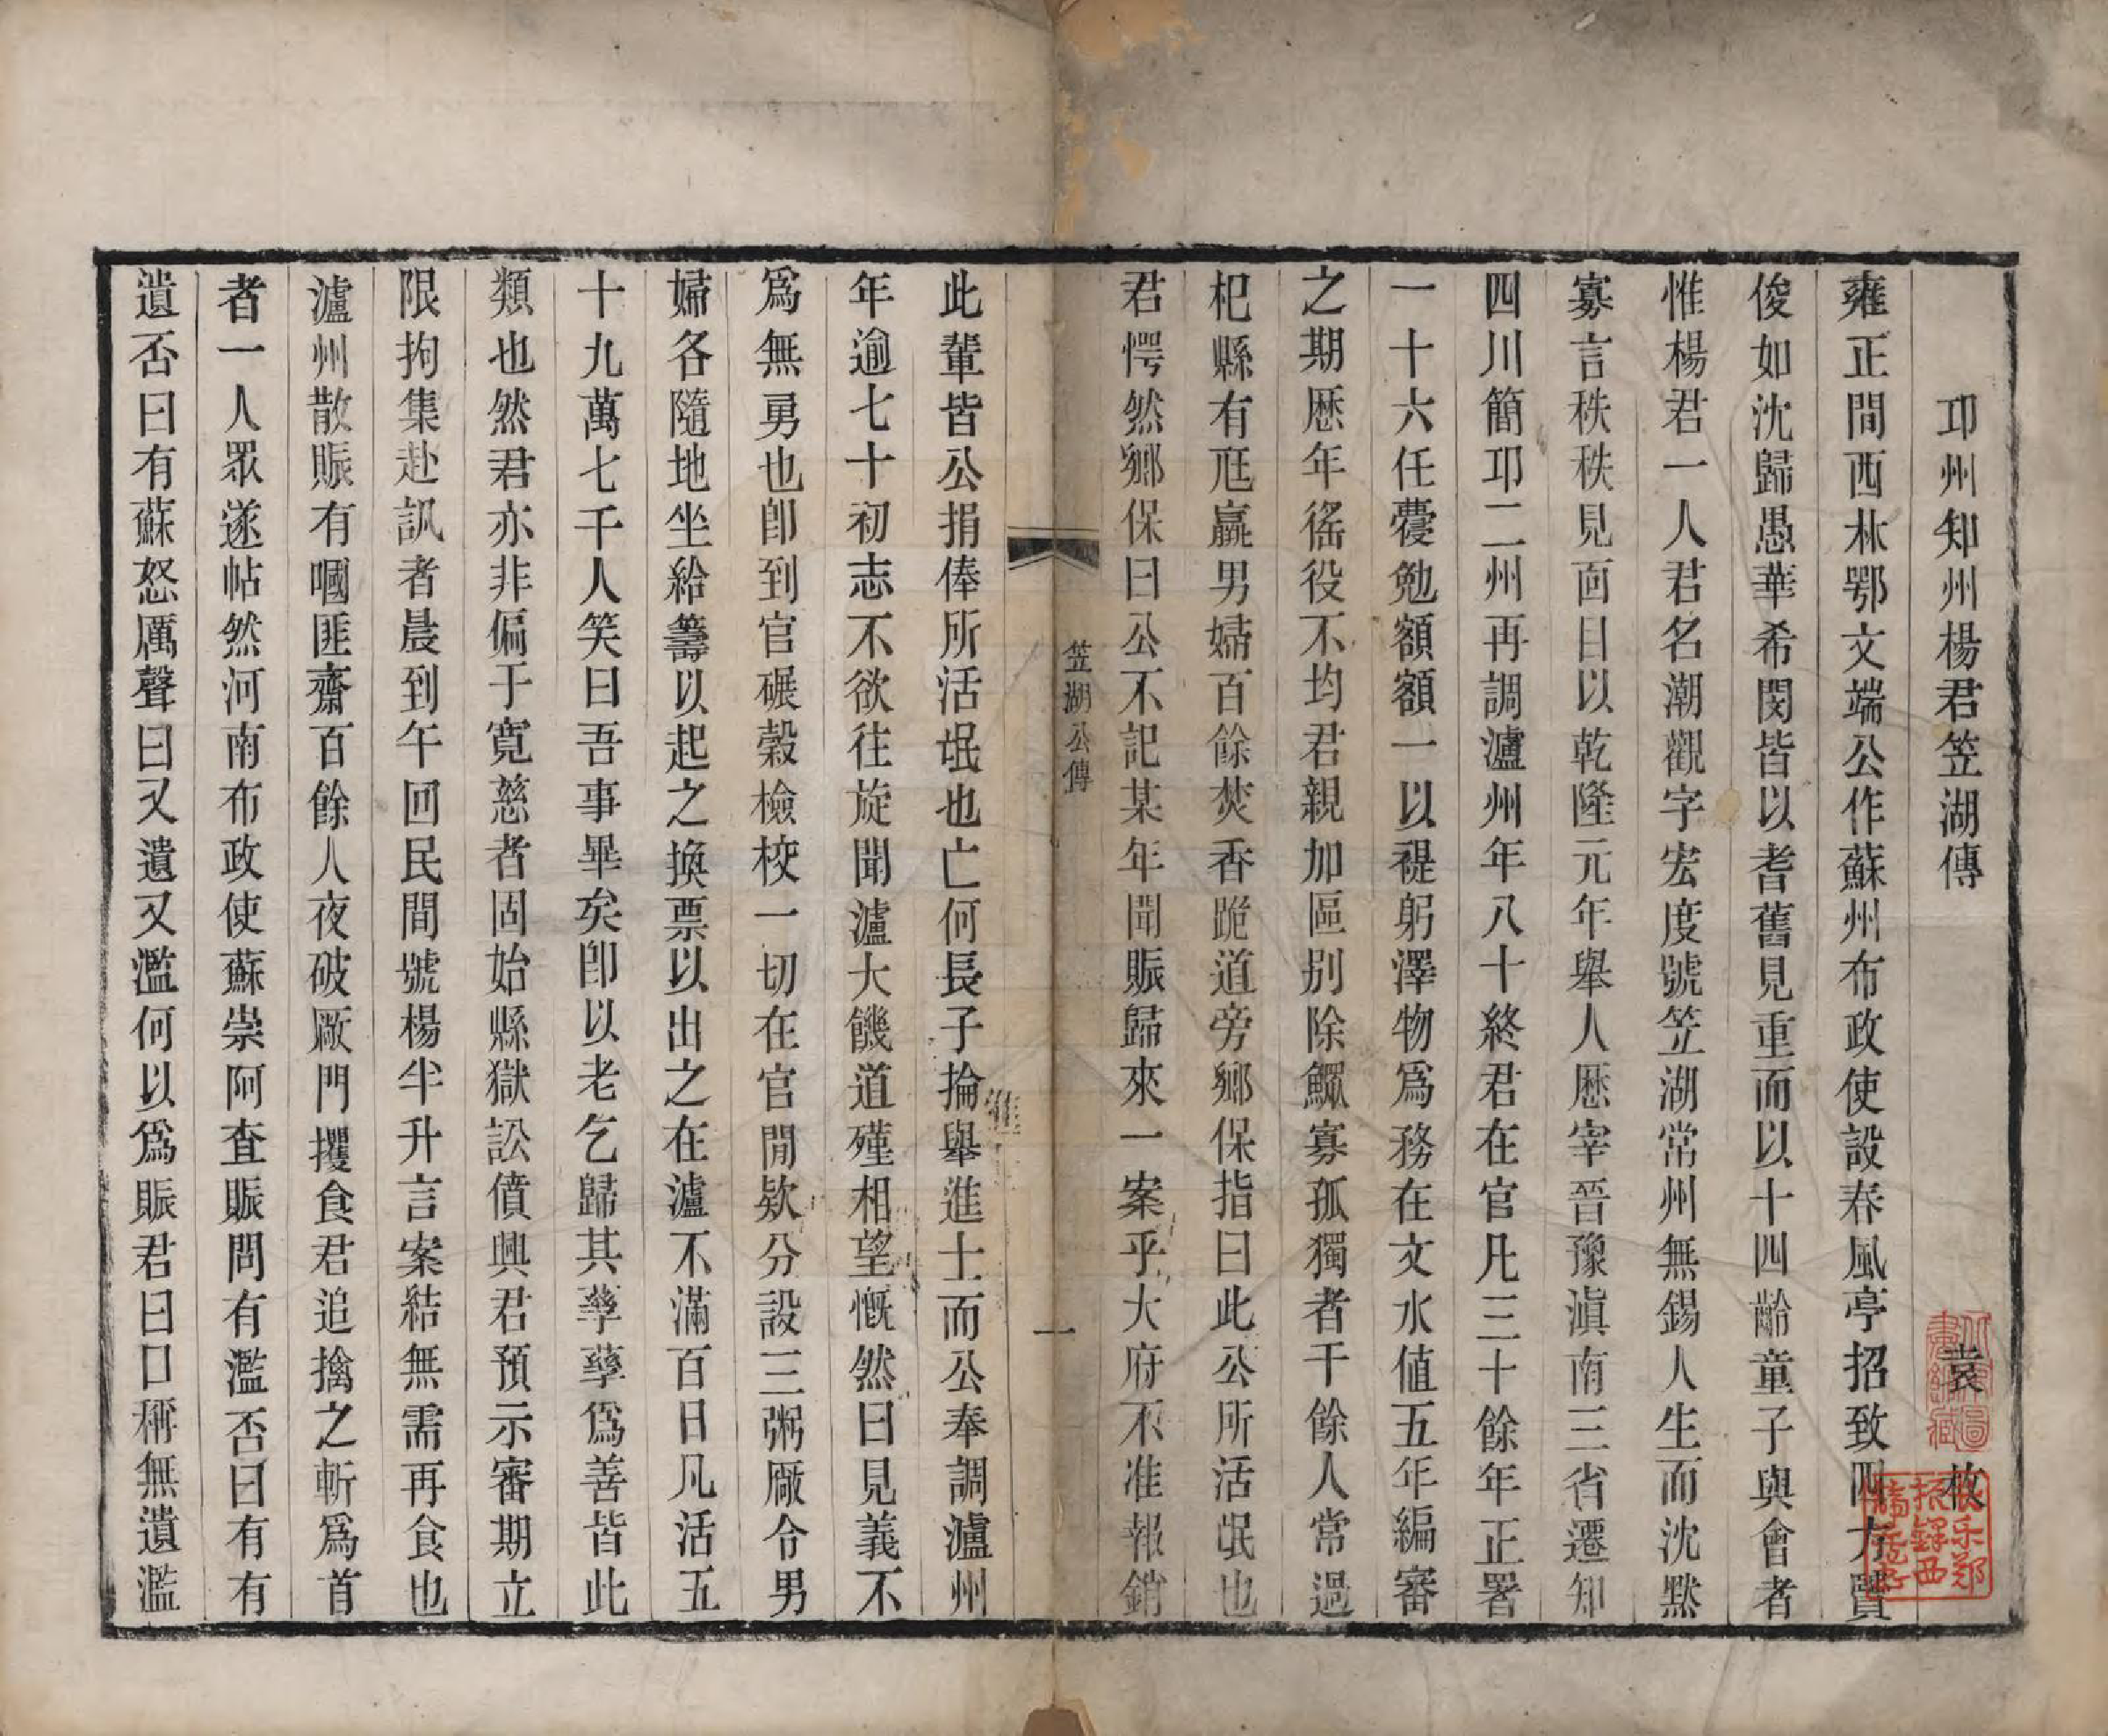 邛州知州楊君笠湖傳
袁枚
雍正間西林鄂文端公作蘇州布政使設春風亭招致四方賢
俊如沈歸愚華希閔皆以耆舊見重而以十四齡童子與會者
惟楊君一人君名潮觀字宏度號笠湖常州無錫人生而沈黙
寡言秩秩見面目以乾隆元年舉人歷宰晉豫滇南三省遷知
四川簡邛二州再調瀘州年八十終君在官凡三十餘年正署
一十六任蘉勉額額一以禔躬澤物爲務在文水値五年編審
之期歷年徭役不均君親加區别除鰥寡孤獨者千餘人常過
杞縣有尩羸男婦百餘焚香跪道旁鄉保指曰此公所活氓也
君愕然鄉保曰公不記某年聞賑歸來一案乎大府不准報銷
笠湖公傳
一
此輩皆公捐俸所活氓也亡何長子掄舉進士而公奉調瀘州
年逾七十初志不欲往旋聞瀘大饑道殣相望慨然曰見義不
爲無勇也卽到官碾穀檢校一切在官閒欵分設三粥厰令男
婦各隨地坐給籌以起之換票以出之在瀘不滿百日凡活五
十九萬七千人笑曰吾事畢矣卽以老乞歸其孳孳爲善皆此
類也然君亦非偏于寛慈者固始縣獄訟僨興君預示審期立
限拘集赴訊者晨到午回民間號楊半升言案結無需再食也
瀘州散賑有嘓匪齋百餘人夜破厰門攫食君追擒之斬爲首
者一人眾遂帖然河南布政使蘇崇阿查賑問有濫否曰有有
遺否曰有蘇怒厲聲曰又遺又濫何以爲賑君曰口稱無遺濫